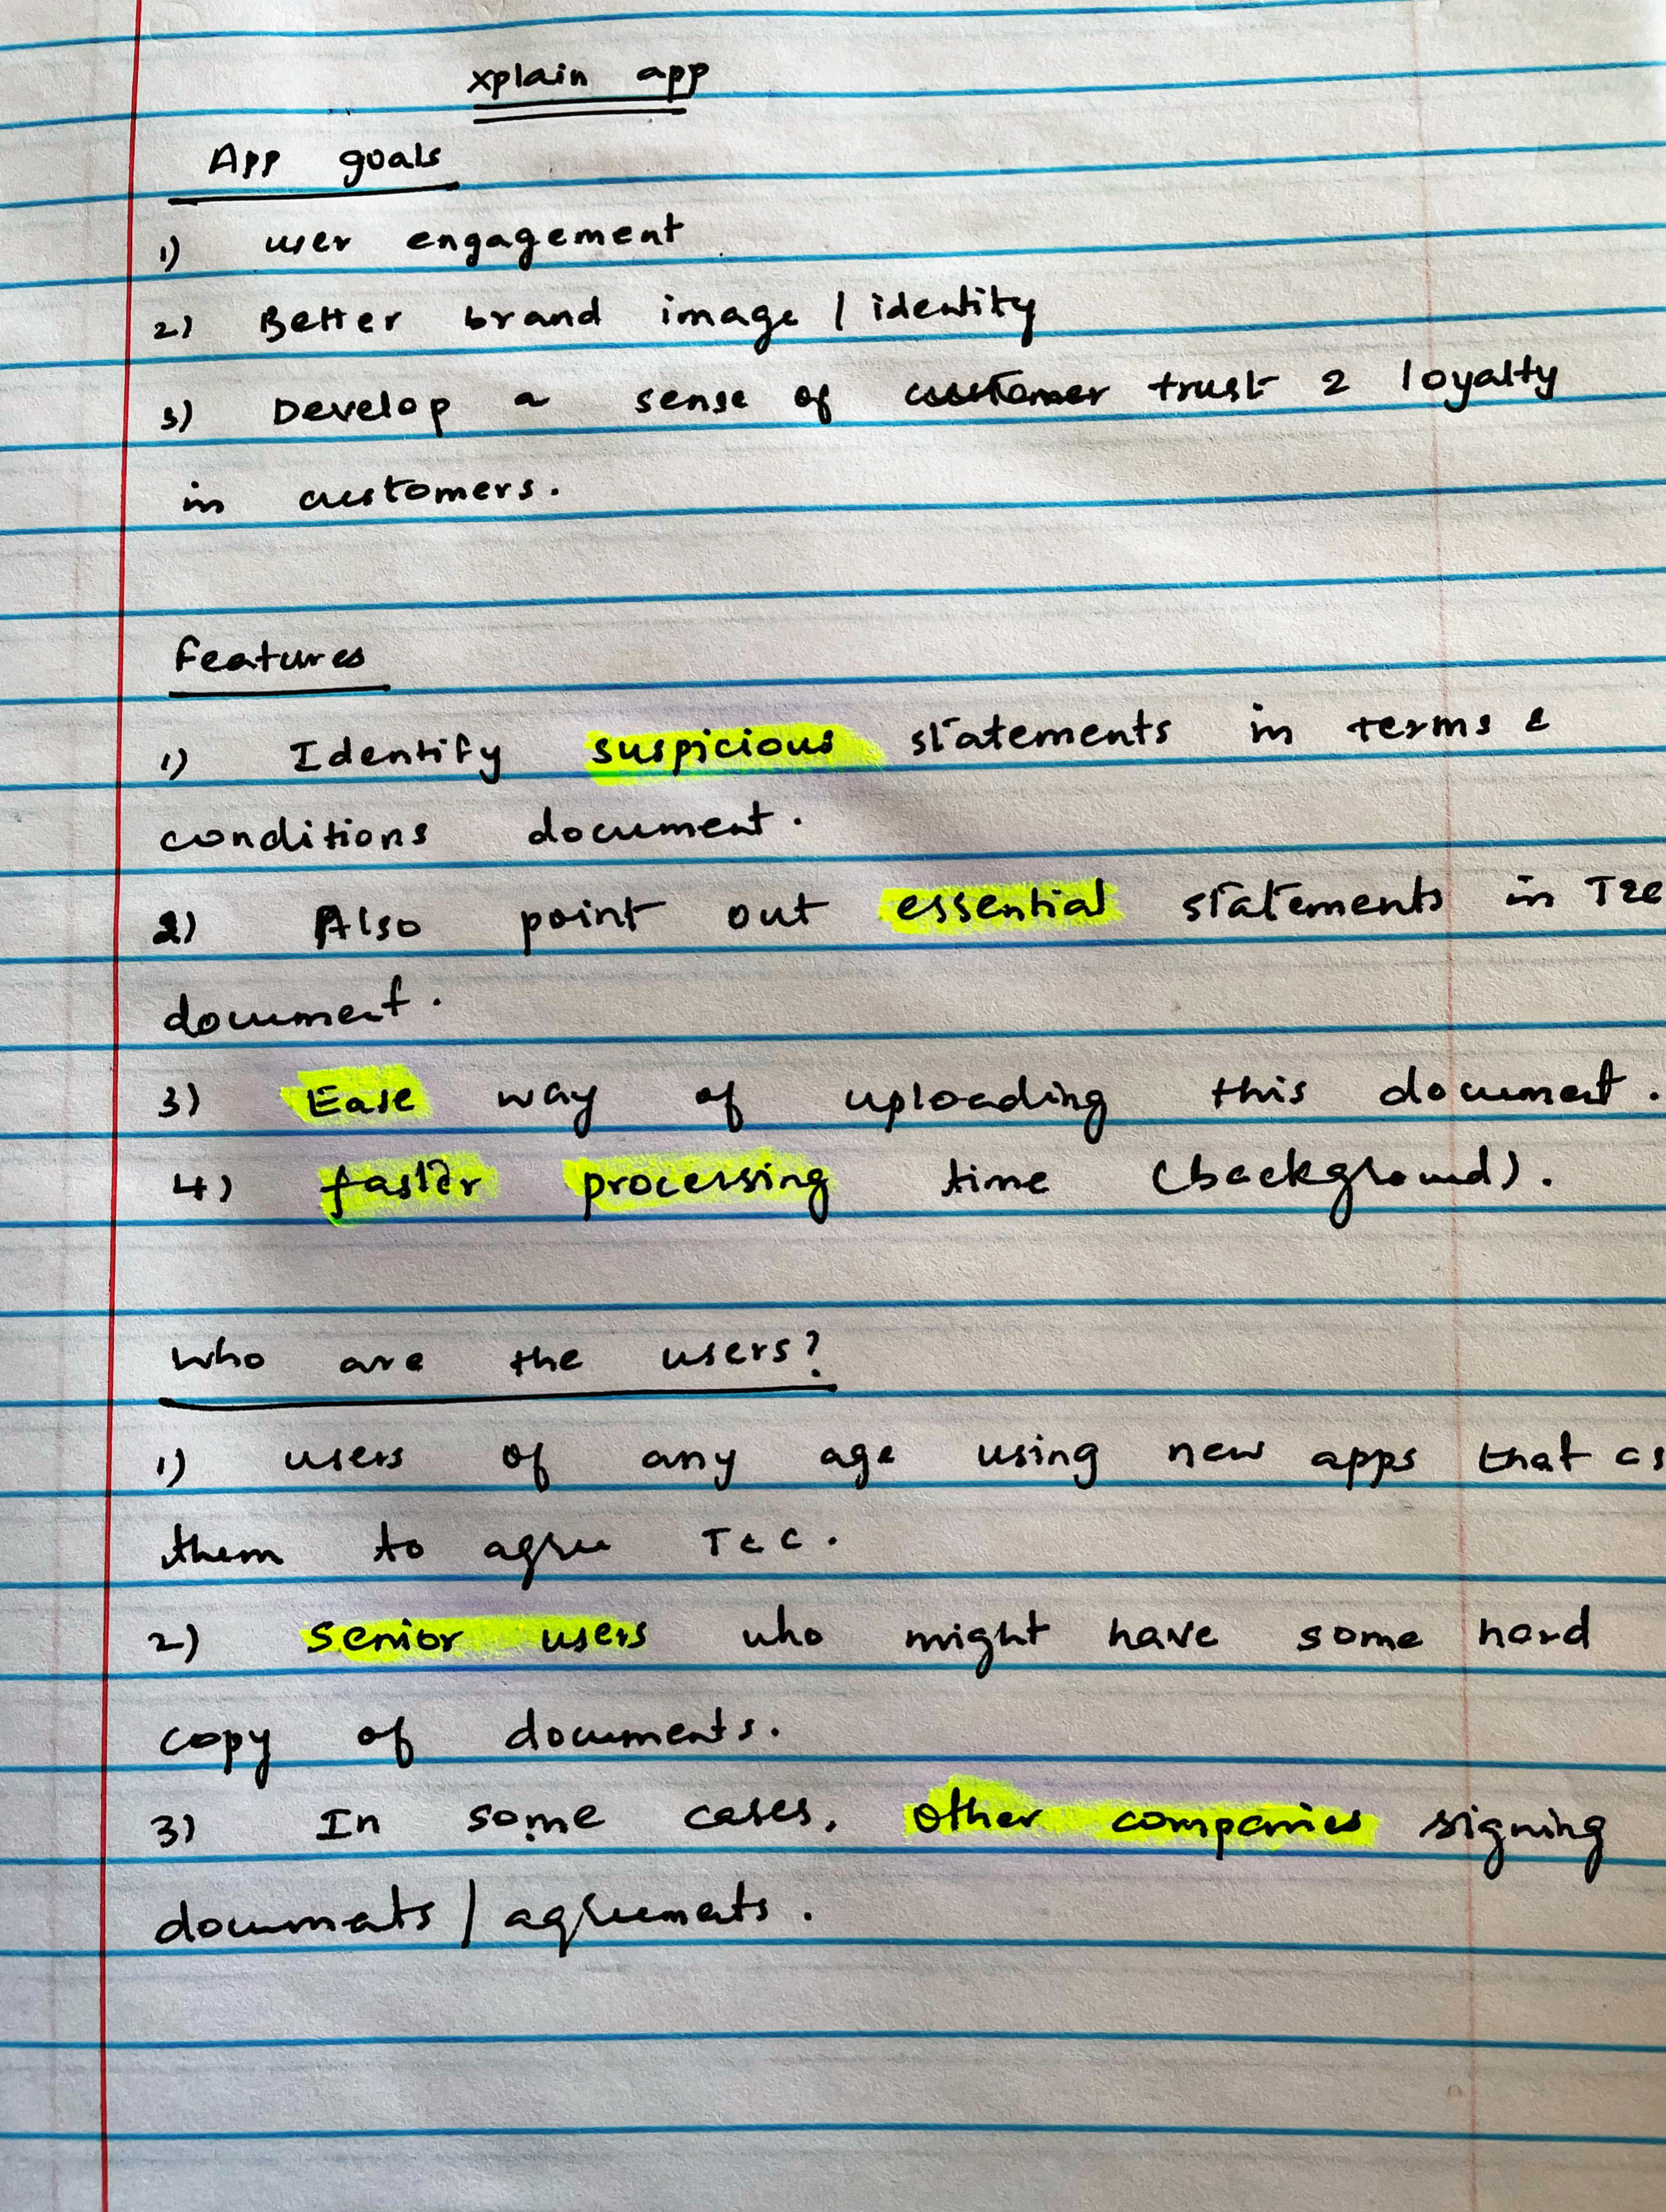 xplain app
App goals
1) user engagement
2) Better brand image / identity
3) Develop a sense of customer trust & loyalty
in customers.
Features
1) Identify suspicious statements in terms &
conditions document.
2) Also point out essential statements in T&C
document.
3) Ease way of uploading this document.
4) faster processing time (background).
Who are the users?
1) users of any age using new apps that as
them to agree T&C.
2) Senior users who might have some hard
copy of documents.
3) In some cases, other companies signing
documents / agreements.